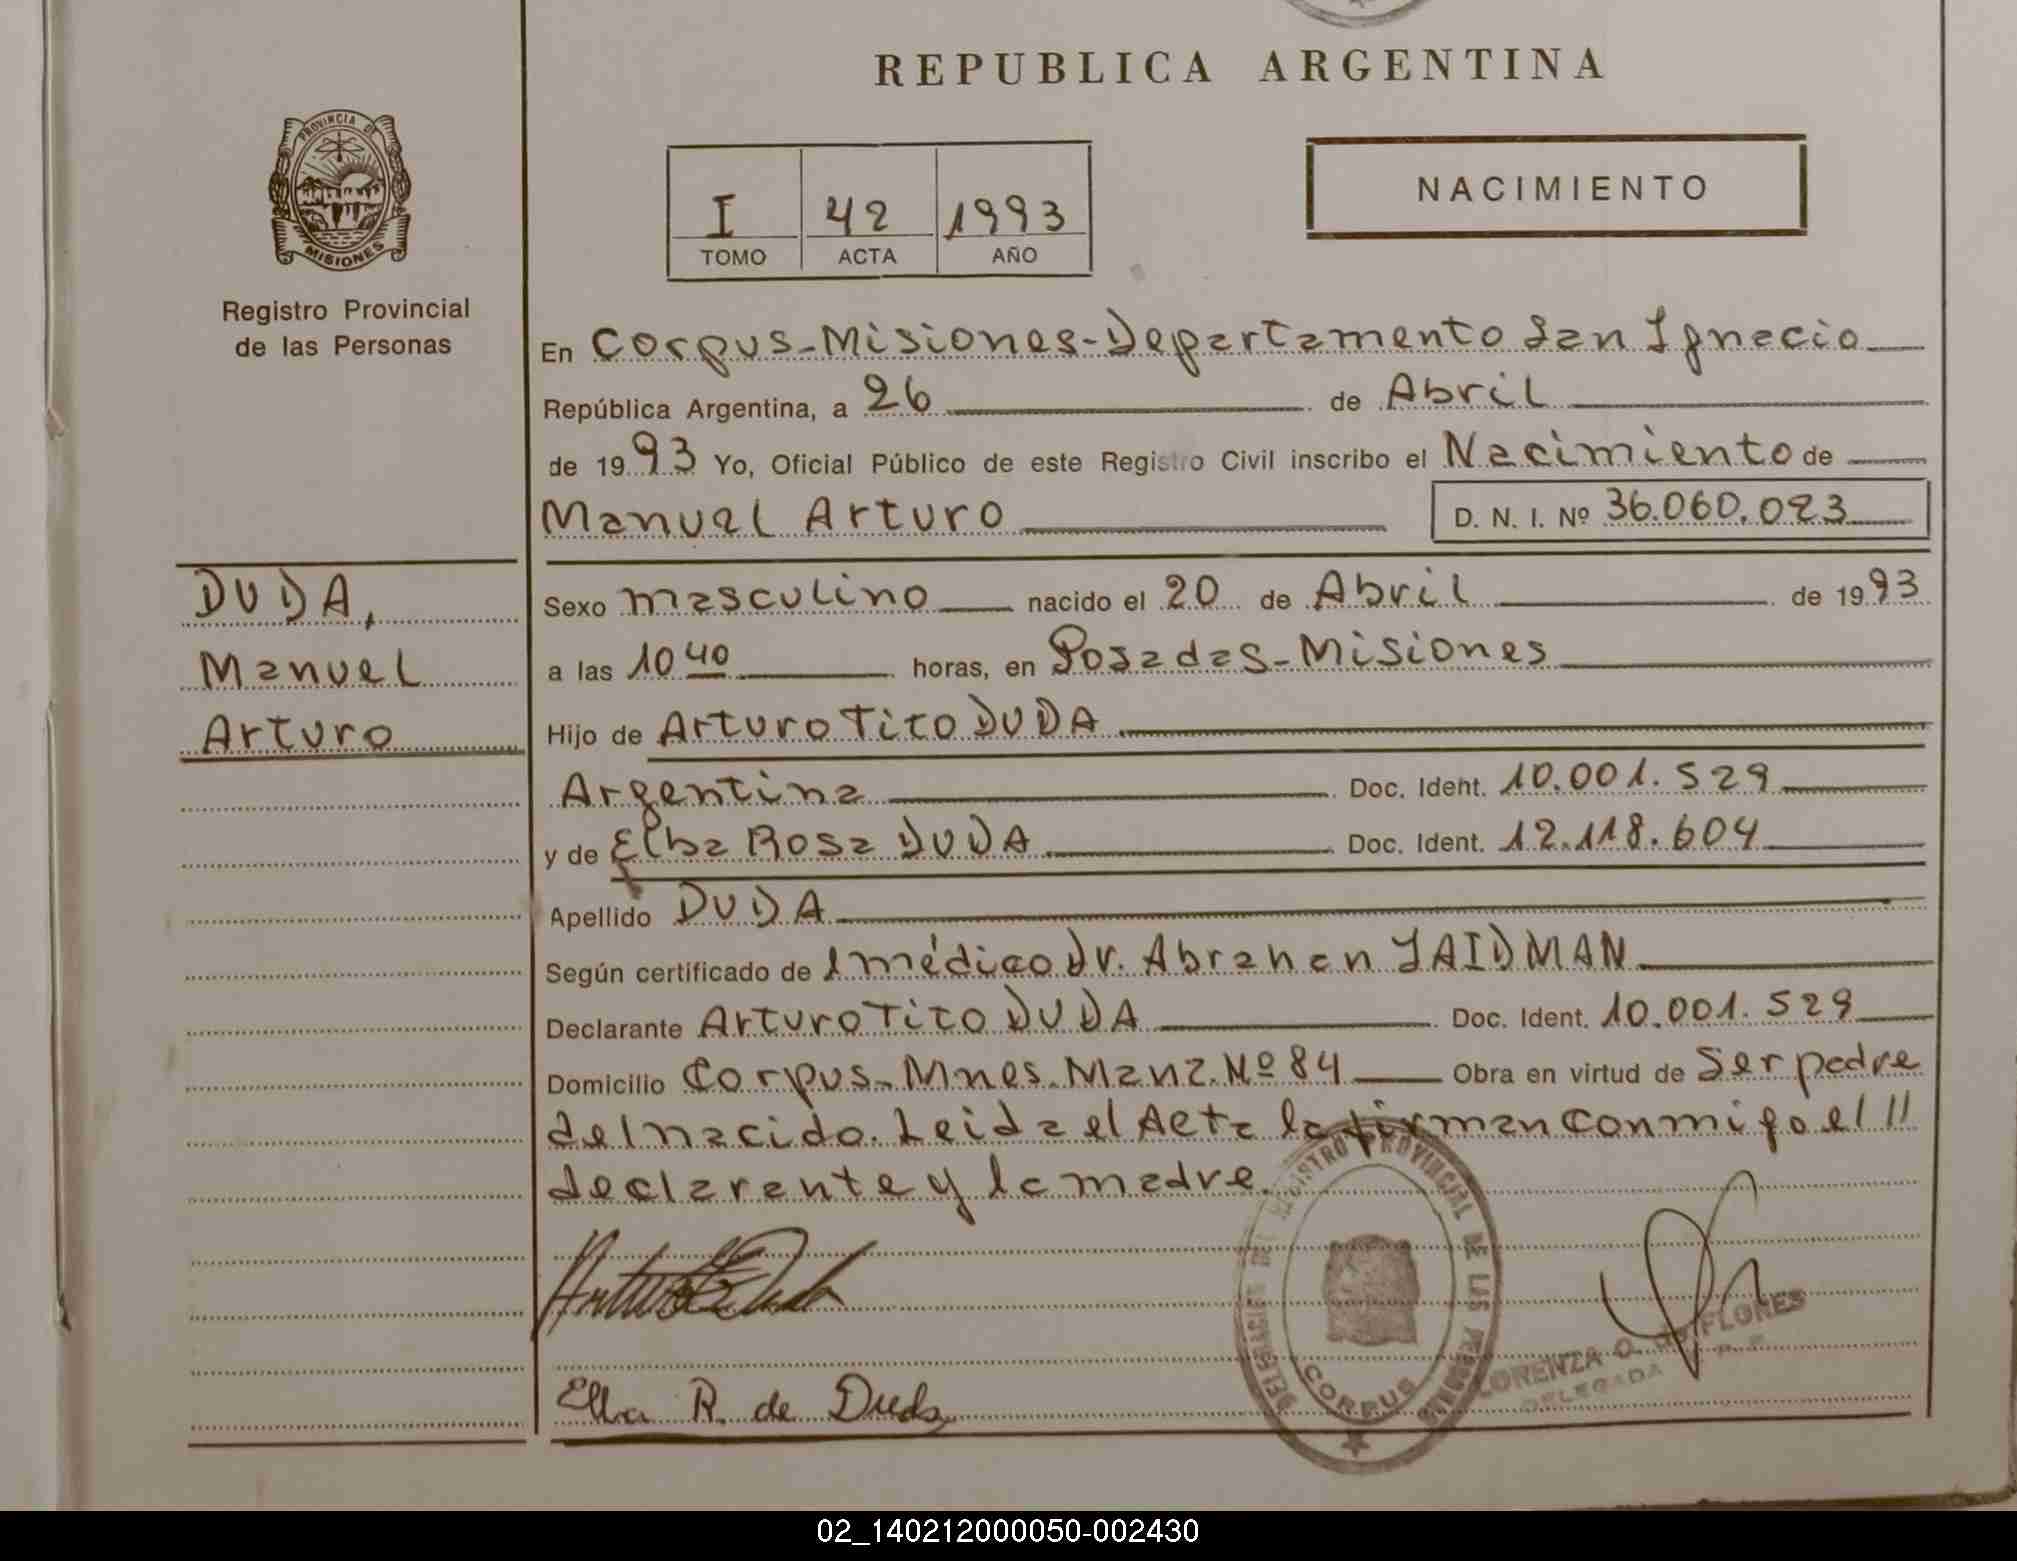 REPUBLICA ARGENTINA
PROVINCIA DE
MISIONES
Registro Provincial
de las Personas
I 42 1993
TOMO ACTA AÑO
NACIMIENTO
En Corpus-Misiones-Departamento San Ignacio
República Argentina, a 26 de Abril
de 1993 Yo, Oficial Público de este Registro Civil inscribo el Nacimiento de
Manuel Arturo D. N. I. Nº 36.060.023
DUDA,
Manuel
Arturo
Sexo masculino nacido el 20 de Abril de 1993
a las 10 40 horas, en Posadas-Misiones
Hijo de Arturo Tito DUDA
Argentina Doc. Ident. 10.001.529
y de Elba Rosa DUDA Doc. Ident. 12.118.604
Apellido DUDA
Según certificado de l médico Dr. Abrahan JAIDMAN
Declarante Arturo Tito DUDA Doc. Ident. 10.001.529
Domicilio Corpus-Mnes. Manz. Nº 84 Obra en virtud de Ser padre
del nacido. Leida el Acta la firman conmigo el //
declarante y la madre.
DELEGACION DEL REGISTRO PROVINCIAL DE LAS PERSONAS
CORPUS
LORENZA O. DE FLORES
DELEGADA
Elba R. de Duda
02_140212000050-002430